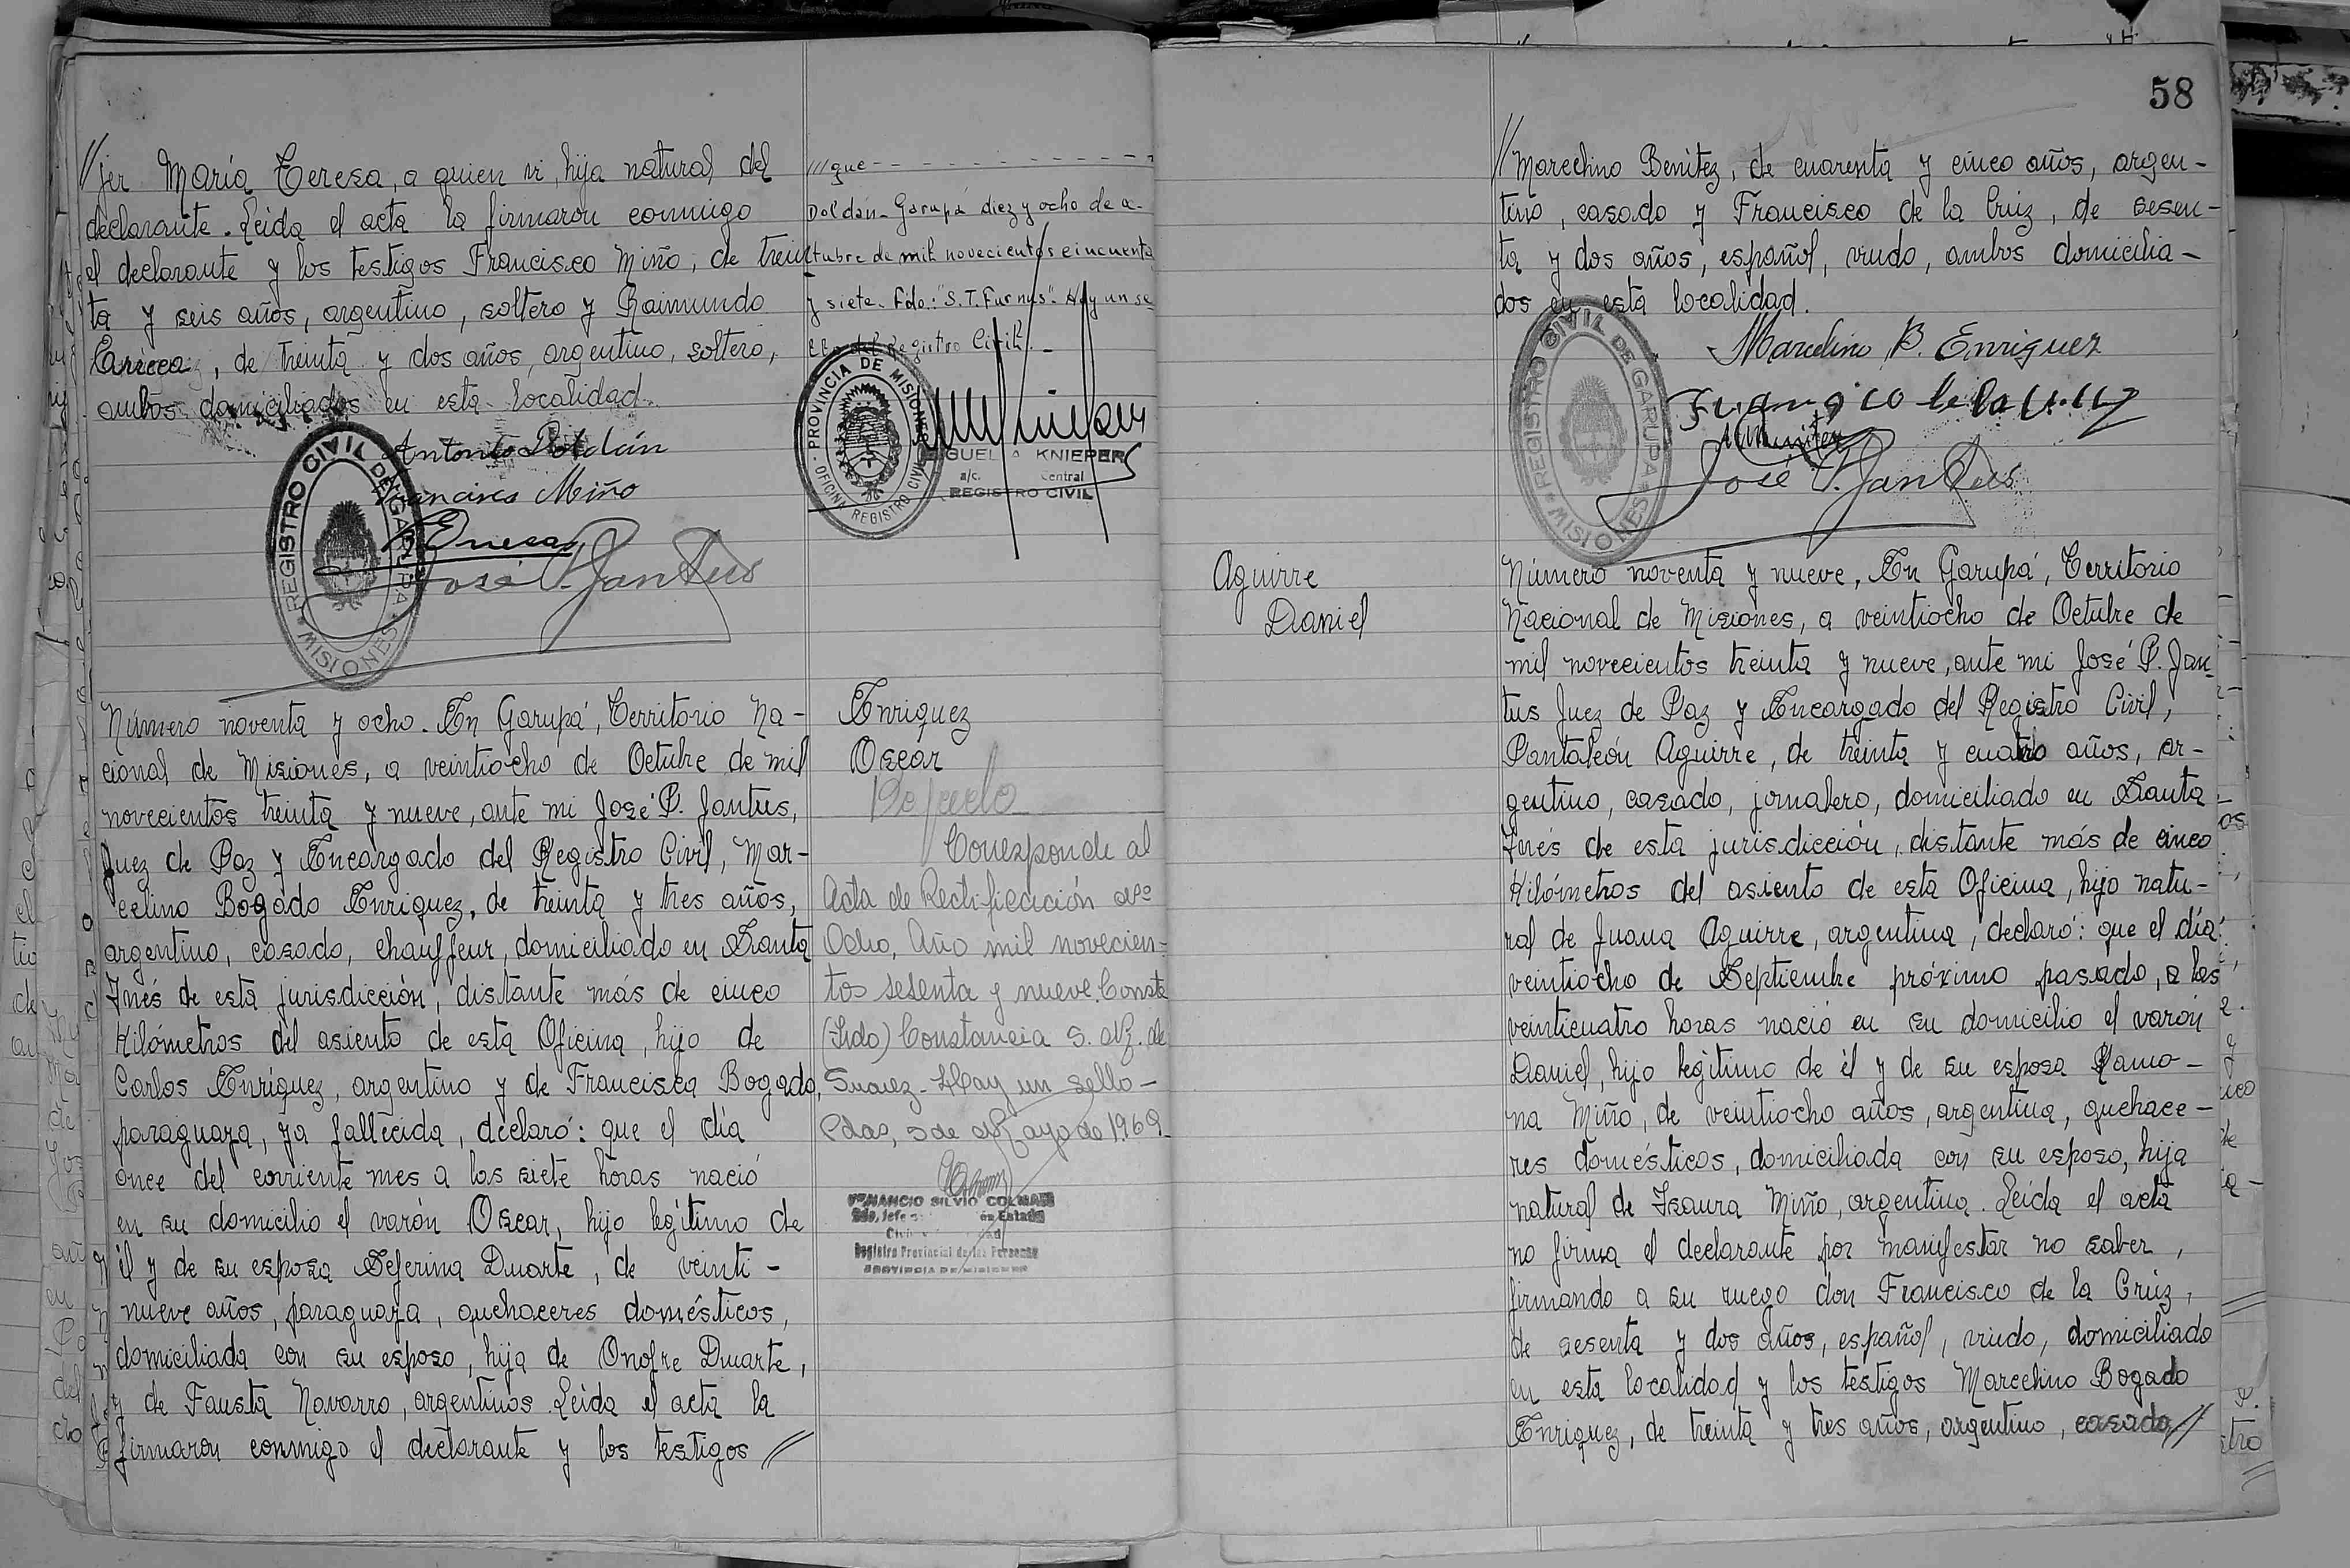 //jer María Teresa, a quien vi, hija natural del
declarante. Leida el acta la firmaron conmigo
el declarante y los testigos Francisco Miño, de trein
ta y seis años, argentino, soltero y Raimundo
, de treinta y dos años, argentino, soltero,
ambos domiciliados en esta localidad.
Antonio Roldán
Francisco Miño
José P. Jantus
REGISTRO CIVIL DE GARUPA
MISIONES
Número noventa y ocho. En Garupá, Territorio Na-
cional de Misiones, a veintiocho de Octubre de mil
novecientos treinta y nueve, ante mi José P. Jantus,
Juez de Paz y Encargado del Registro Civil, Mar-
celino Bogado Enriquez, de treinta y tres años,
argentino, casado, chauffeur, domiciliado en Santa
Inés de esta jurisdicción, distante más de cinco
Kilómetros del asiento de esta Oficina, hijo de
Carlos Enríquez, argentino y de Francisca Bogado,
paraguaya, ya fallecida, declaró: que el día
once del corriente mes a las siete horas nació
en su domicilio el varón Oscar, hijo legítimo de
él y de su esposa Seferina Duarte, de veinti-
nueve años, paraguaya, quehaceres domésticos,
domiciliada con su esposo, hija de Onofre Duarte,
y de Fausta Navarro, argentinos. Leida el acta la
firmaron conmigo el declarante y los testigos //
///que - - - - - - - - - - - -
Doldán- Garupá diez y ocho de o-
tubre de mil novecientos cincuenta
y siete- Fdo.: "S.T. Furnus". Hay un se
llo del Registro Civil.-
PROVINCIA DE MISIONES
OFICINA REGISTRO CIVIL
MIGUEL A KNIEPER
a/c. Central
REGISTRO CIVIL
Enriquez
Oscar
Corresponde al
Acta de Rectificación Nº
Ocho, Año mil novecien-
tos sesenta y nueve. Conste
(Fdo) Constancia S. Nz. de
Suarez- Hay un sello-
Pdas, 5 de Mayo de 1969-
VENANCIO SILVIO COLMAN
Registro Provincial de las Personas
PROVINCIA DE MISIONES
58
//Marcelino Benitez, de cuarenta y cinco años, argen-
tino, casado y Francisco de la Cruz, de sesen-
ta y dos años, español, viudo, ambos domicilia-
dos en esta localidad.
Marcelino B. Enriquez
Francisco de la Cruz
José P. Jantus
REGISTRO CIVIL DE GARUPA
MISIONES
Aguirre
Daniel
Número noventa y nueve, En Garupá, Territorio
Nacional de Misiones, a veintiocho de Octubre de
mil novecientos treinta y nueve, ante mi José P. Jan-
tus Juez de Paz y Encargado del Registro Civil,
Pantaleón Aguirre, de treinta y cuatro años, ar-
gentino, casado, jornalero, domiciliado en Santa
Inés de esta jurisdicción, distante más de cinco
Kilómetros del asiento de esta Oficina, hijo natu-
ral de Juana Aguirre, argentina, declaró: que el día
veintiocho de Septiembre próximo pasado, a las
veinticuatro horas nació en su domicilio el varón
Daniel, hijo legítimo de él y de su esposa Ramo-
na Miño, de veintiocho años, argentina, quehace-
res domésticos, domiciliada con su esposo, hija
natural de Isaura Miño, argentina. Leida el acta
no firma el declarante por manifestar no saber,
firmando a su ruego don Francisco de la Cruz,
de sesenta y dos años, español, viudo, domiciliado
en esta localidad y los testigos Marcelino Bogado
Enriquez, de treinta y tres años, argentino, casado//